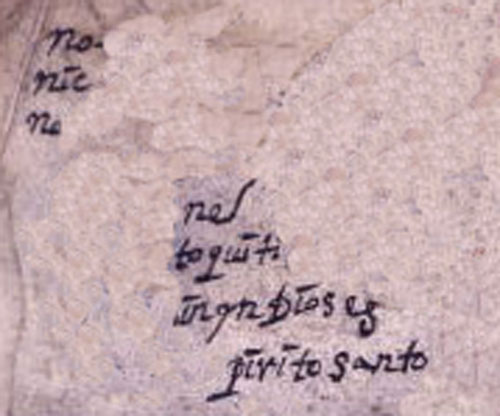 no.
nic
ne
nel
toquiti
inyn Dios es
pirito santo